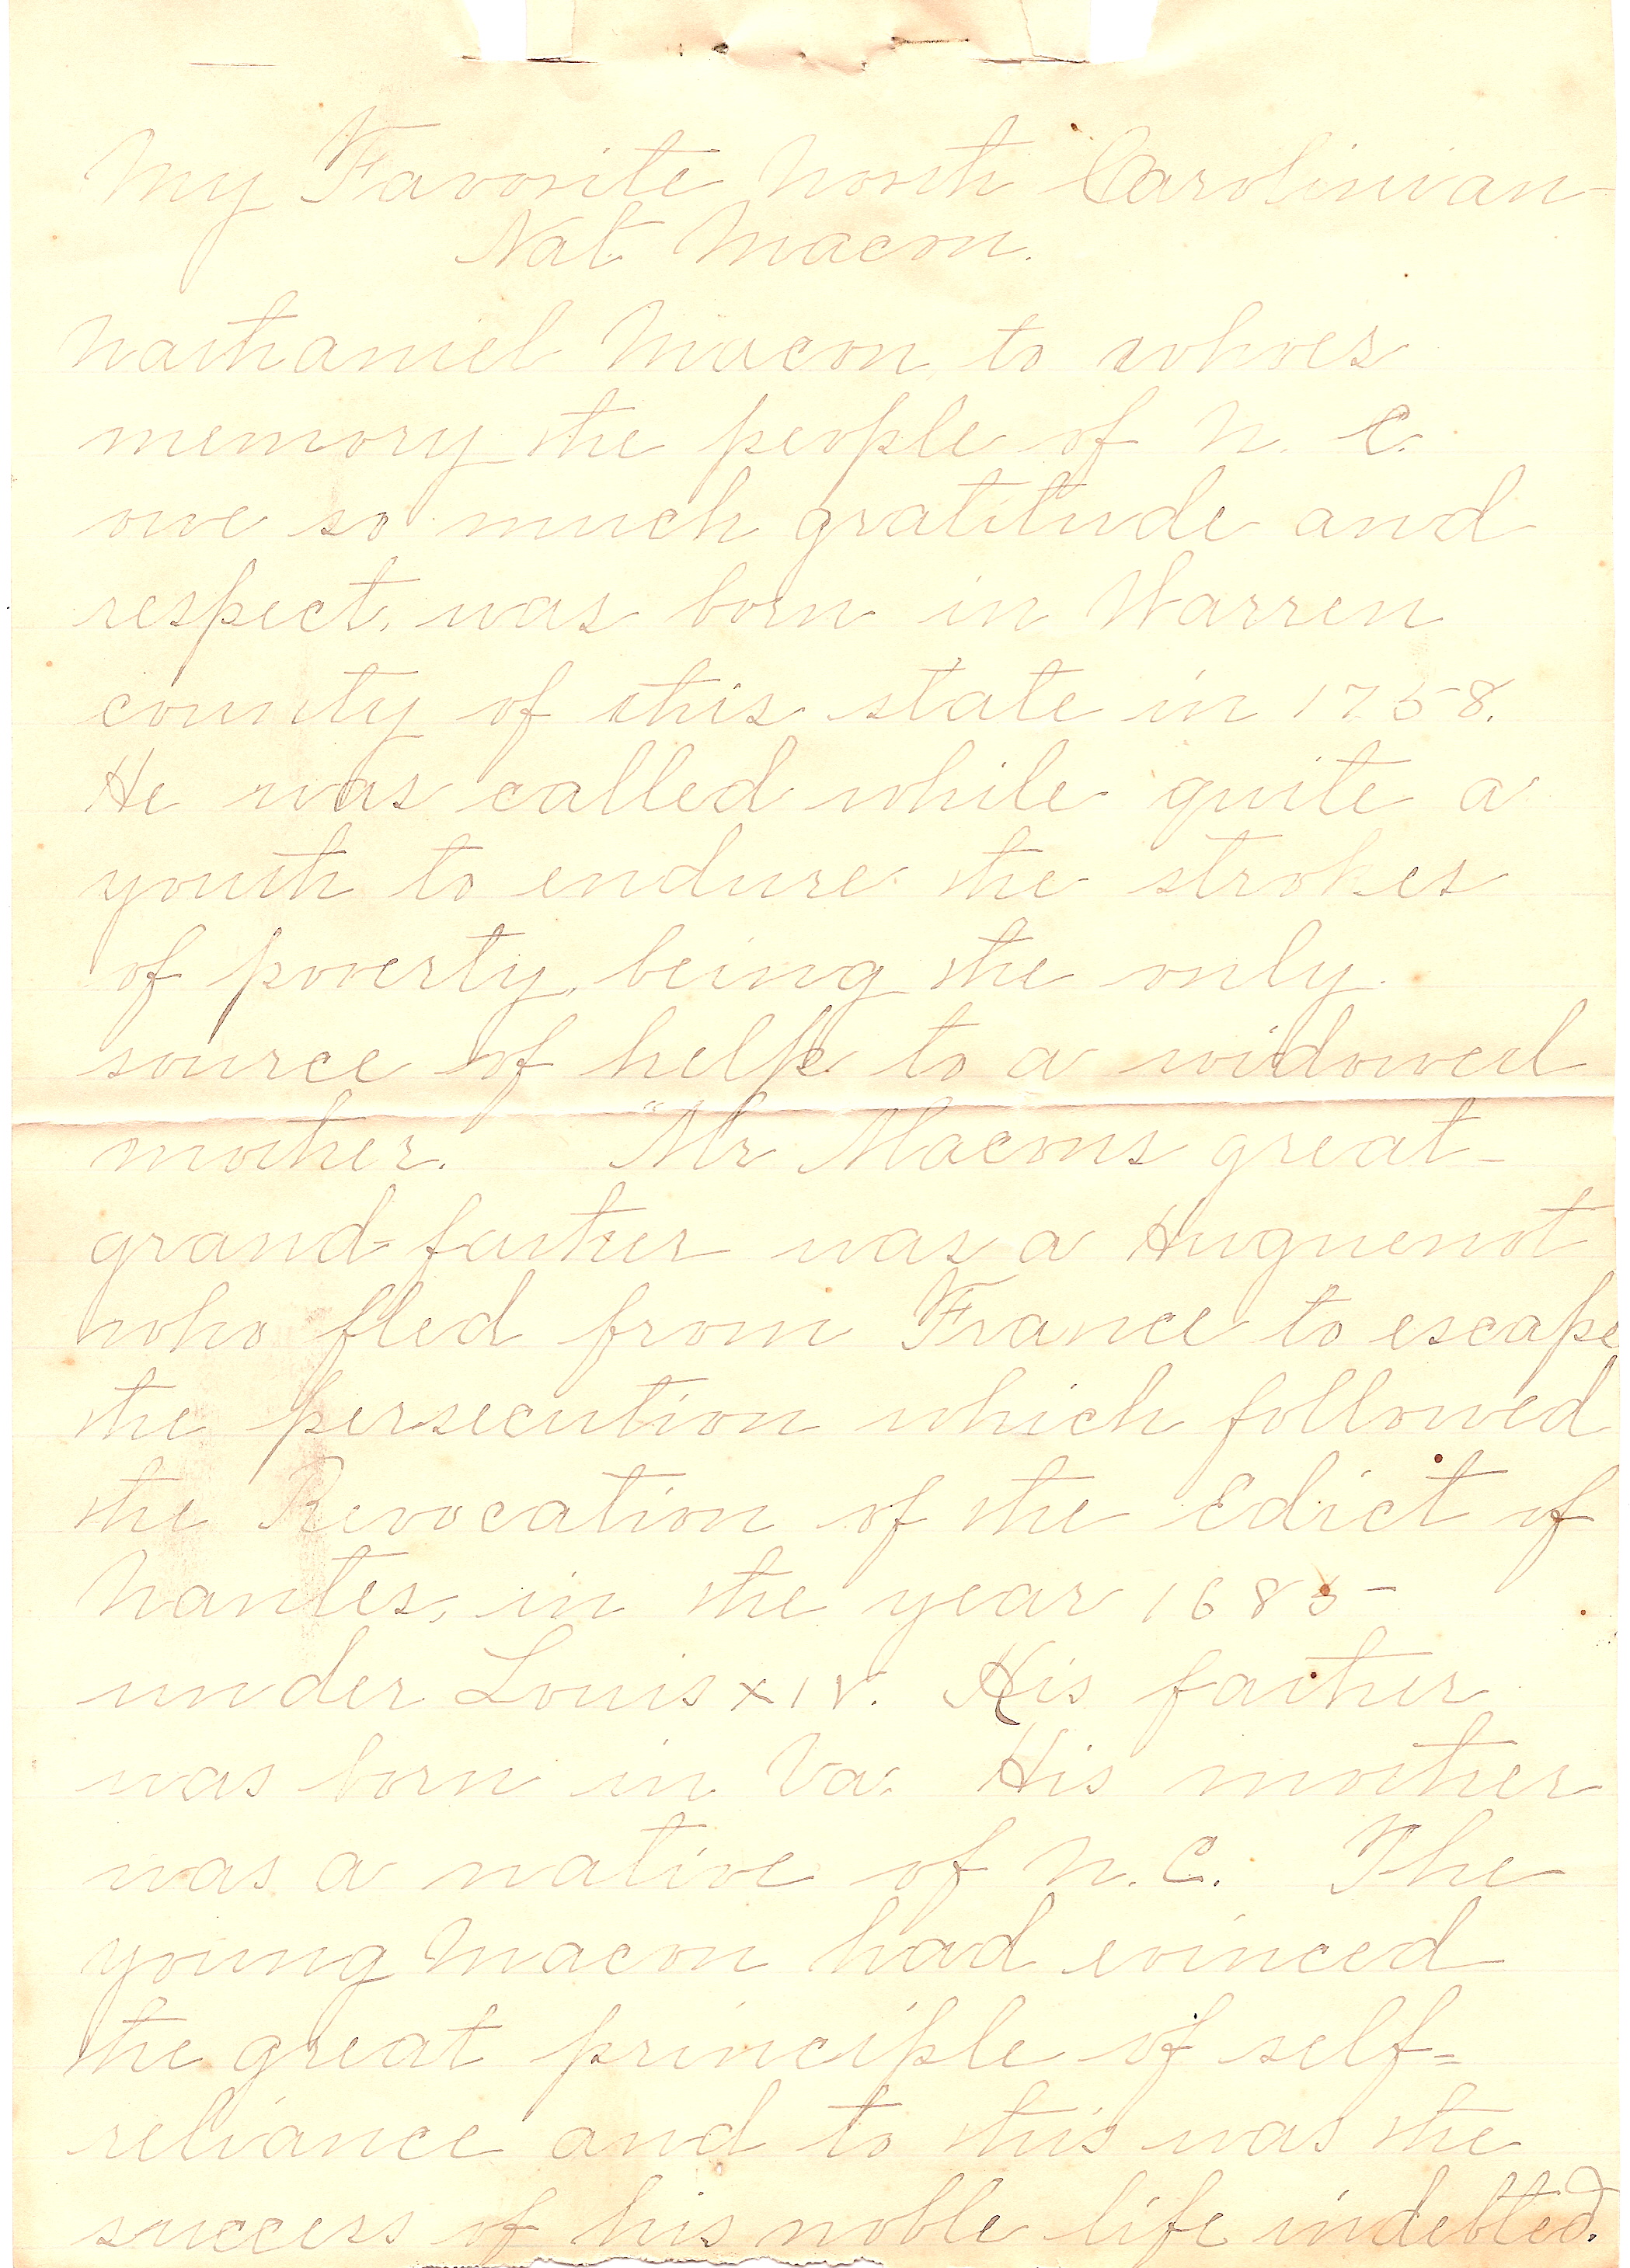 My Favorite North Carolinian-
Nat Macon.
Nathaniel Macon, to whoes
memory the people of N. C.
owe so much gratitude and
respect, was born in Warren
county of this state in 1758.
He was called while quite a
youth to endure the strokes
of poverty, being the only
source of help to a widowed
mother. "Mr Macons great-
grand-father was a Huguenot
who fled from France to escape
the persecution which followed
the Revocation of the Edict of
Nantes, in the year 1685-
under Louis XIV. His father
was born in Va. His mother
was a native of N.C. The
young Macon had evinced
the great principle of self=
reliance and to this was the
success of his noble life indebted.